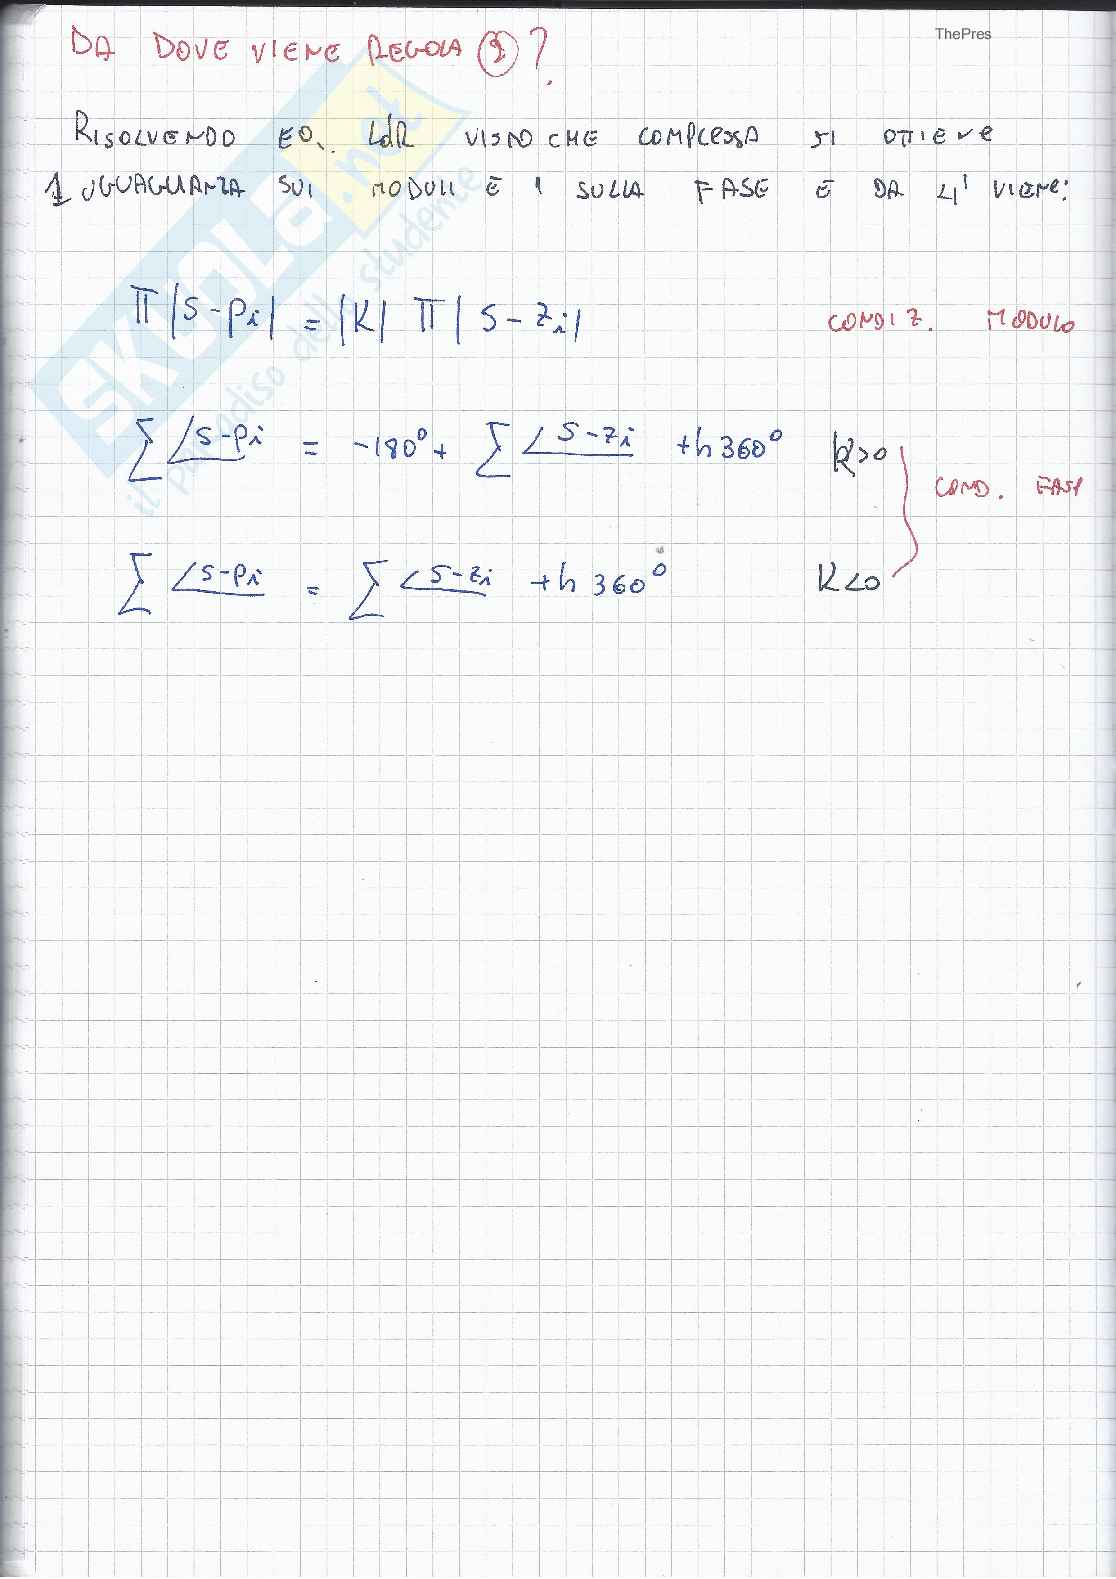 ThePres
DA DOVE VIENE REGOLA ?
RISOLVENDO EQ. LdR VISTO CHE COMPLESSA SI OTTIENE
1 UGUAGLIANZA SUI MODULI E 1 SULLA FASE E DA LI' VIENE:
π|s-pi| = |K| π|s-zi| CONDIZ. MODULO
∑∠s-pi = -180° + ∑∠s-zi +h360° K>0
COND. FASI
∑∠s-pi = ∑∠s-zi +h360° K<0
SKUOLA.net
il paradiso dello studente